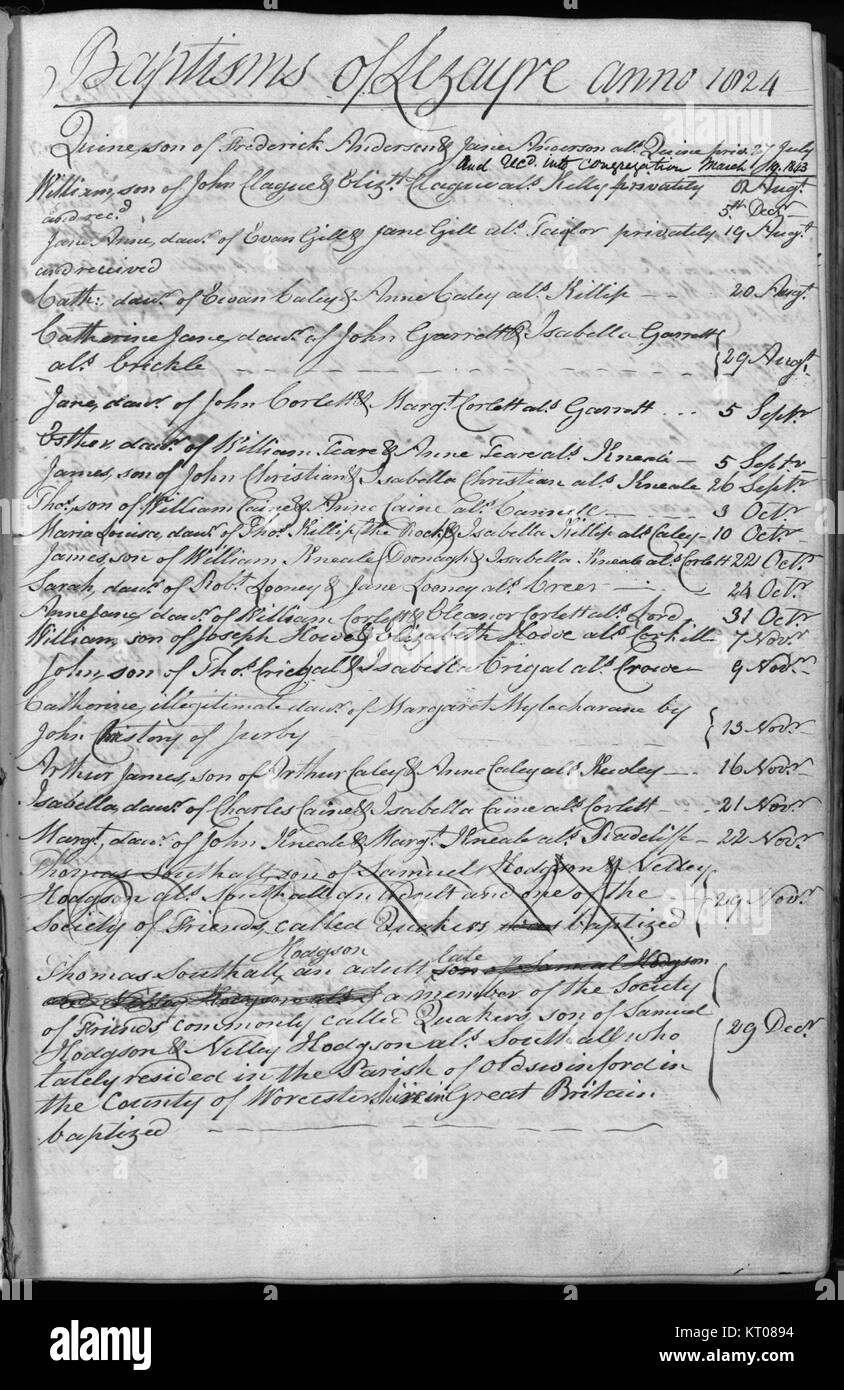 Baptisms of Lezayre anno 1824
Quine, son of Frederick Anderson & Jane Anderson als. Quine priv. 27 July
and recd. into congregation March 19. 1843
William, son of John Clague & Elizth. Clague als. Kelly privately 02 Augt.
and recd. 5th Decr.
Jane Anne, daur. of Evan Gill & Jane Gill als. Taylor privately 19 Augt.
and received
Cath: daur. of Ewan Caley & Anne Caley als. Killip -- 20 Augt.
Catherine Jane, daur. of John Garrett & Isabella Garrett
als. Crickle - - - - - - 29 Augt.
Jane, daur. of John Corlett & Margt. Corlett als. Garrett ... 5 Septr.
Esther, daur. of William Teare & Anne Teare als. Kneale - 5 Septr.
James, son of John Christian & Isabella Christian als. Kneale 26 Septr.
Thos. son of William Caine & Anne Caine als. Cannell - 3 Octr.
Maria Louisa, daur. of Thos. Killip (the Rock) & Isabella Killip als. Caley - 10 Octr.
James, son of William Kneale (Doonagh) & Isabella Kneale als. Corlett 22 Octr.
Sarah, daur. of Robt. Looney & Jane Looney als. Creer - 24 Octr.
Anne Jane, daur. of William Corlett & Eleanor Corlett als. Lord. 31 Octr.
William, son of Joseph Howe & Elizabeth Howe als. Corkill - 7 Novr.
John, son of Thos. Crigal & Isabella Crigal als. Crowe - 9 Novr.
Catherine, illegitimate daur. of Margaret Mylecharane by
John Christory of Jurby - - - 13 Novr.
Arthur James, son of Arthur Caley & Anne Caley als. - - 16 Novr.
Isabella, daur. of Charles Caine & Isabella Caine als. Corlett - 21 Novr.
Margt. daur. of John Kneale & Margt. Kneale als. Radcliffe - 22 Novr.
Thomas Southall, son of Samuel Hodgson & Nelley
Hodgson als. Southall an adult and one of the
Society of Friends, called Quakers was baptized 29 Novr.
Thomas Southall Hodgson, an adult, late son of Samuel Hodgson
and Nelley Hodgson als. a member of the Society
of Friends commonly called Quakers, son of Samuel
Hodgson & Nelley Hodgson als. Southall who
lately resided in the Parish of Oldswinford in
the County of Worcestershire in Great Britain
baptized - - - - - - 29 Decr.
alamy
Image ID: KT0894
www.alamy.com